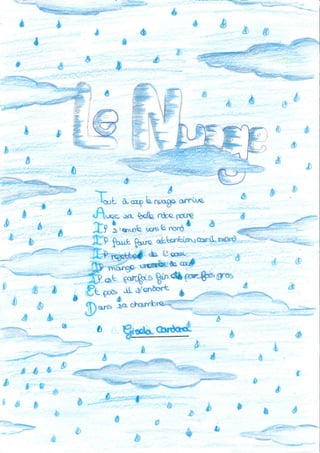 Le Nuage
Tout à coup le nuage arrive
Avec sa belle robe noire
Il s'envole vers le nord
Il faut faire attention, car il mord
Il rejette de l'eau
Il mange
Il est parfois fin parfois gros
Et puis il s'endort
Dans sa chambre
Cardard